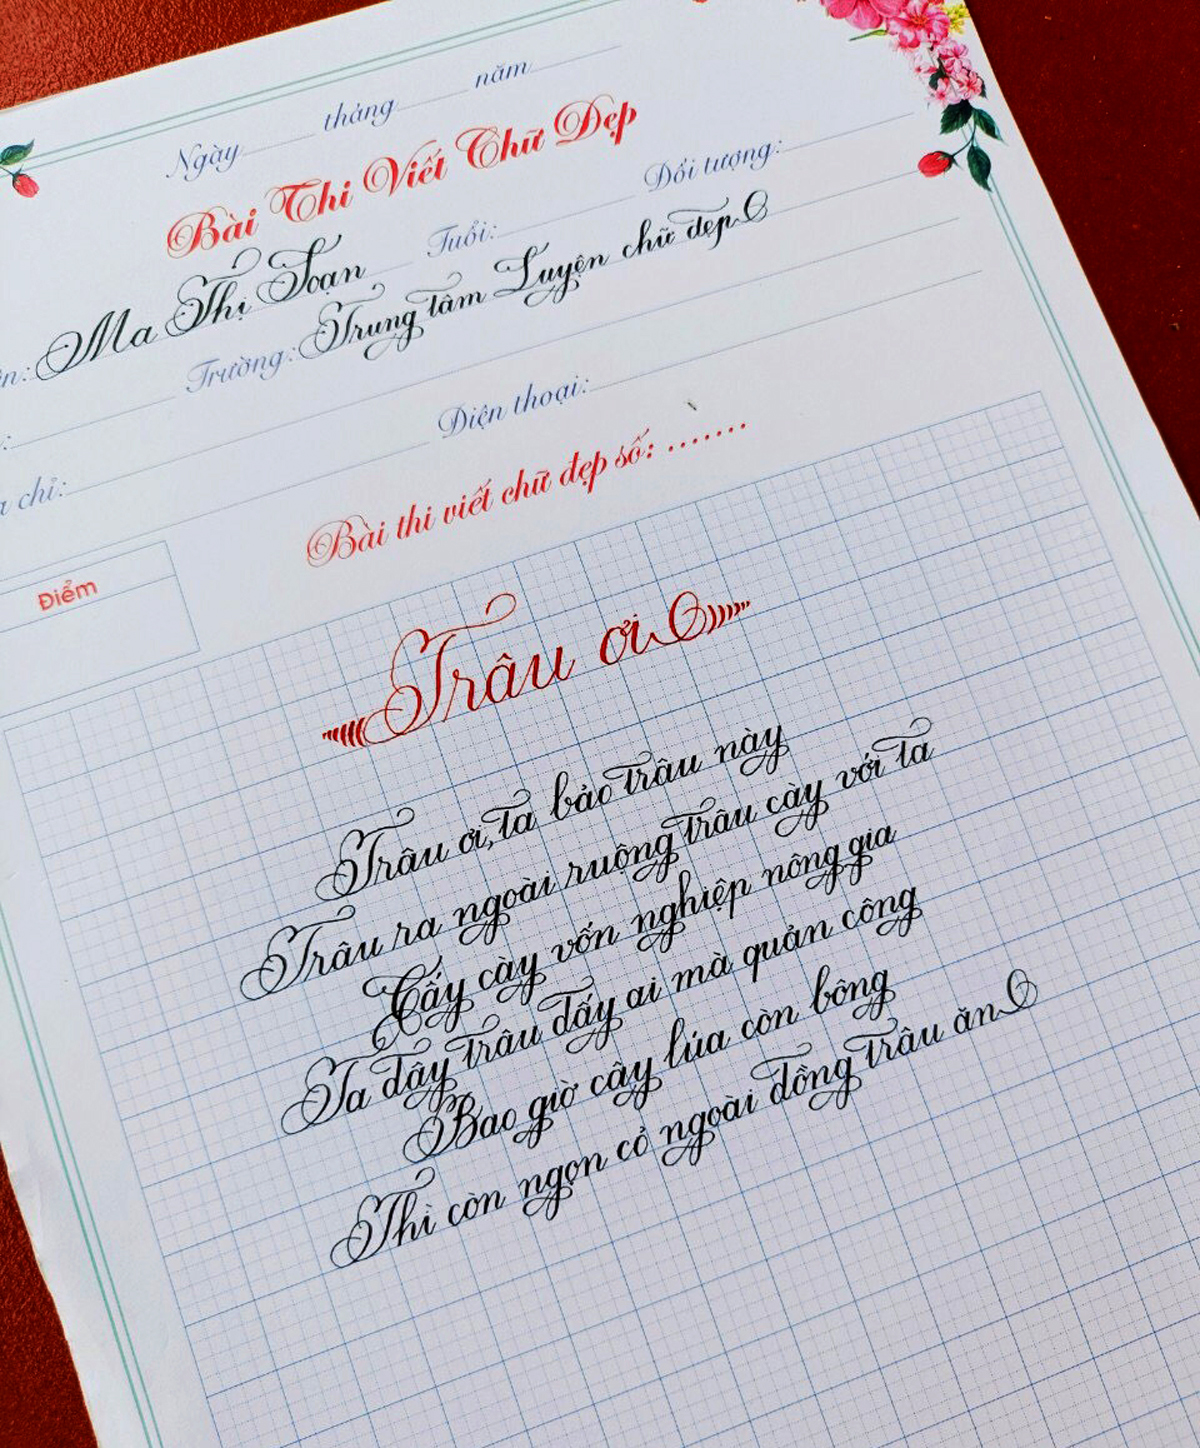 Ngày tháng năm
Bài Thi Viết Chữ Đẹp
n: Ma Thị Soạn Tuổi: Đối tượng:
: Trường: Trung tâm Luyện chữ đẹp
chỉ: Điện thoại:
Bài thi viết chữ đẹp số: .......
Điểm
Trâu ơi
Trâu ơi, ta bảo trâu này
Trâu ra ngoài ruộng trâu cày với ta
Cấy cày vốn nghiệp nông gia
Ta đây trâu đấy ai mà quản công
Bao giờ cây lúa còn bông
Thì còn ngọn cỏ ngoài đồng trâu ăn